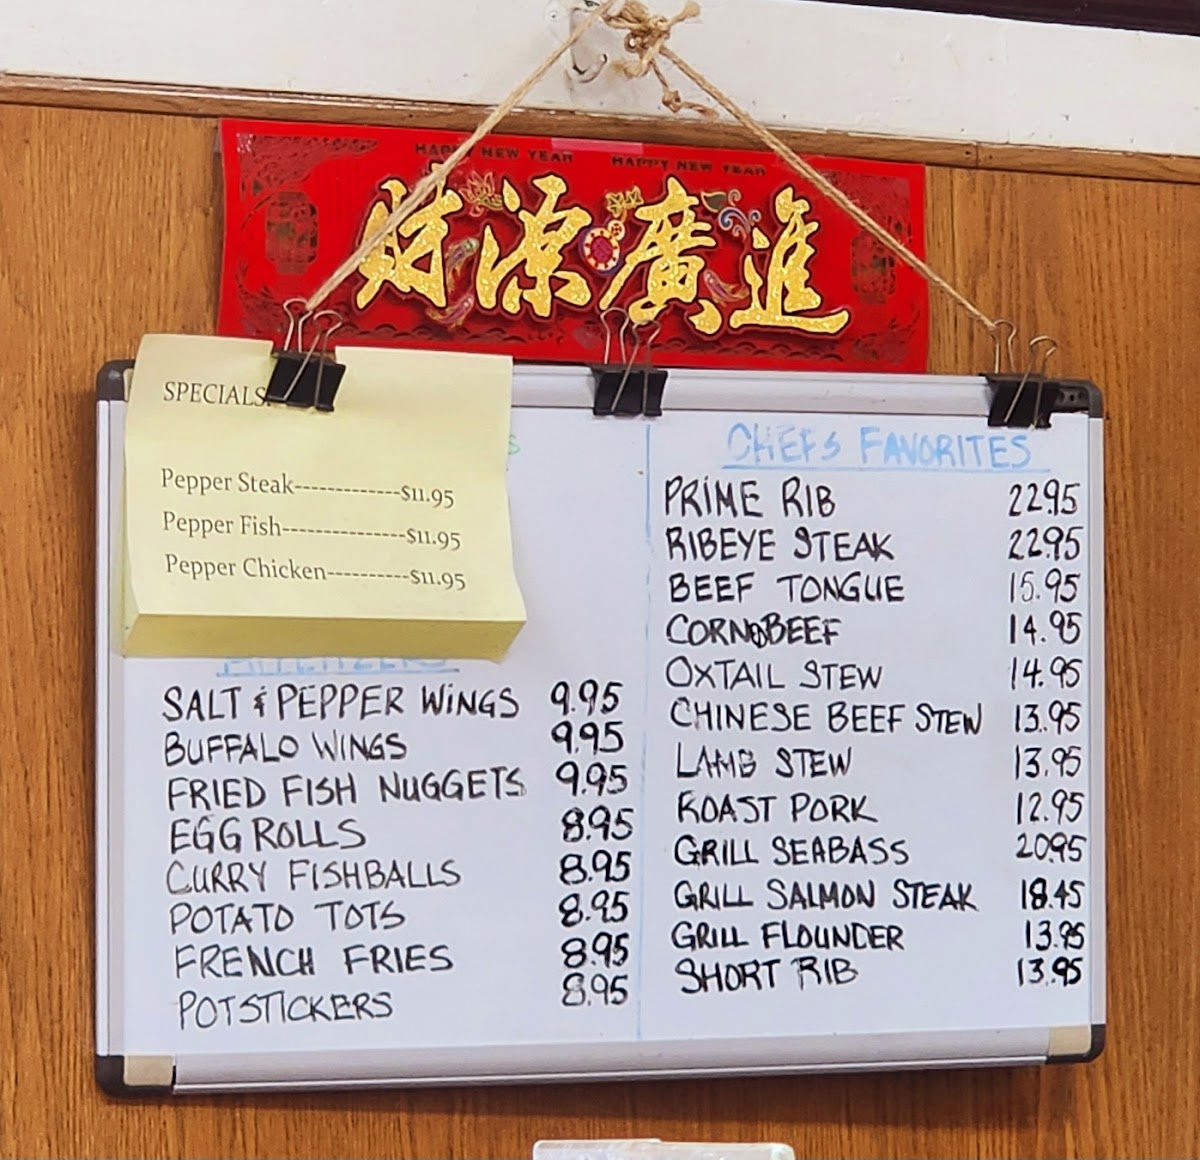 HAPPY NEW YEAR HAPPY NEW YEAR
財源廣進
SPECIALS
Pepper Steak------------$11.95
Pepper Fish--------------$11.95
Pepper Chicken----------$11.95
APPETIZERS
SALT & PEPPER WINGS 9.95
BUFFALO WINGS 9.95
FRIED FISH NUGGETS 9.95
EGG ROLLS 8.95
CURRY FISHBALLS 8.95
POTATO TOTS 8.95
FRENCH FRIES 8.95
POTSTICKERS 8.95
CHEFS FAVORITES
PRIME RIB 22.95
RIBEYE STEAK 22.95
BEEF TONGUE 15.95
CORN BEEF 14.95
OXTAIL STEW 14.95
CHINESE BEEF STEW 13.95
LAMB STEW 13.95
ROAST PORK 12.95
GRILL SEABASS 20.95
GRILL SALMON STEAK 18.45
GRILL FLOUNDER 13.95
SHORT RIB 13.95